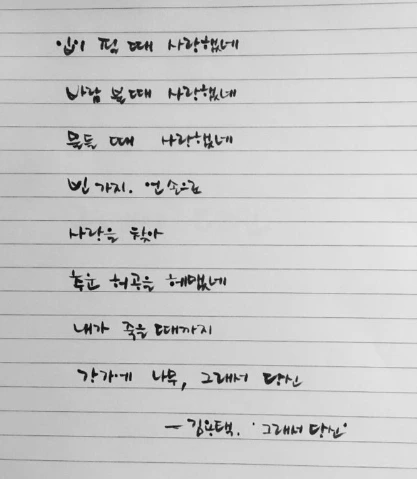 잎이 필 때 사랑했네
바람 불때 사랑했네
물들 때 사랑했네
빈 가지. 언 손으로
사랑을 찾아
추운 허공을 헤맸네
내가 죽을 때까지
강가에 나무, 그래서 당신
- 김용택. '그래서 당신'